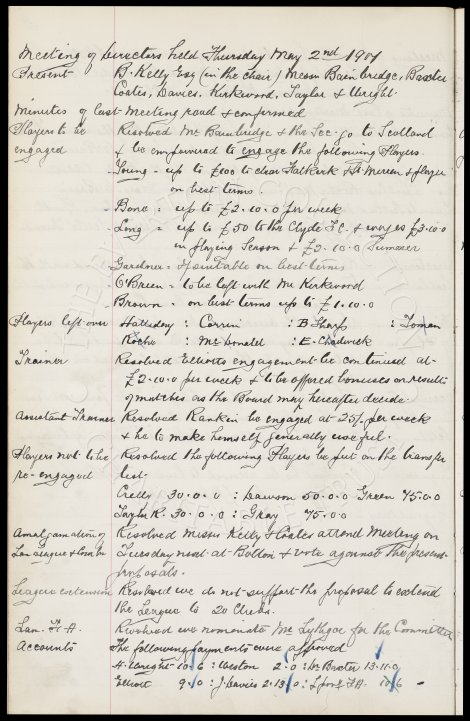 Meeting of Directors held Thursday May 2nd 1901
Present B. Kelly Esq (in the chair) Messrs Bainbridge, Baxter
Coates, Davies, Kirkwood, Taylor & Wright
Minutes of last Meeting read & confirmed
Players to be Resolved Mr Bainbridge & the Sec. go to Scotland
engaged & be empowered to engage the following Players.
Young - up to £100 to clear Falkirk St Mirren & player
on best terms
Bone - up to £2-10-0 per week
Long - up to £50 to the Clyde F.C. & wages £3-10-0
in playing season & £2-10-0 Summer
Gardner - If suitable on best terms
O'Brien - to be left with Mr Kirkwood
Brown - on best terms up to £1-10-0
Players left over Halliday : Corrin : B. Sharp : Toman
Roche : McDonald : E. Chadwick
Trainer Resolved Elliotts engagement be continued at
£2-10-0 per week & to be offered bonuses on results
of matches as the Board may hereafter decide.
Assistant Trainer Resolved Rankin be engaged at 25/- per week
& he to make himself generally useful.
Players not to be Resolved the following Players be put on the transfer
re-engaged list
Crelly 30-0-0 : Lawson 50-0-0 Green 75-0-0
Taylor R. 30-0-0 : Gray 75-0-0
Amalgamation of Resolved Messrs Kelly & Coates attend Meeting on
Lan League & Comb'n Tuesday next at Bolton & vote against the present
proposals.
League extension Resolved we do not support the proposal to extend
the League to 20 Clubs.
Lan. F.A. Resolved we nominate Mr Lythgoe for the Committee
Accounts The following payments were approved
H. Wright 10-6 : Weston 2-0 : Dr Baxter 13-11-0
Elliott 9-0 : J. Davies 2-13-0 : L'pool F.A. 10/6